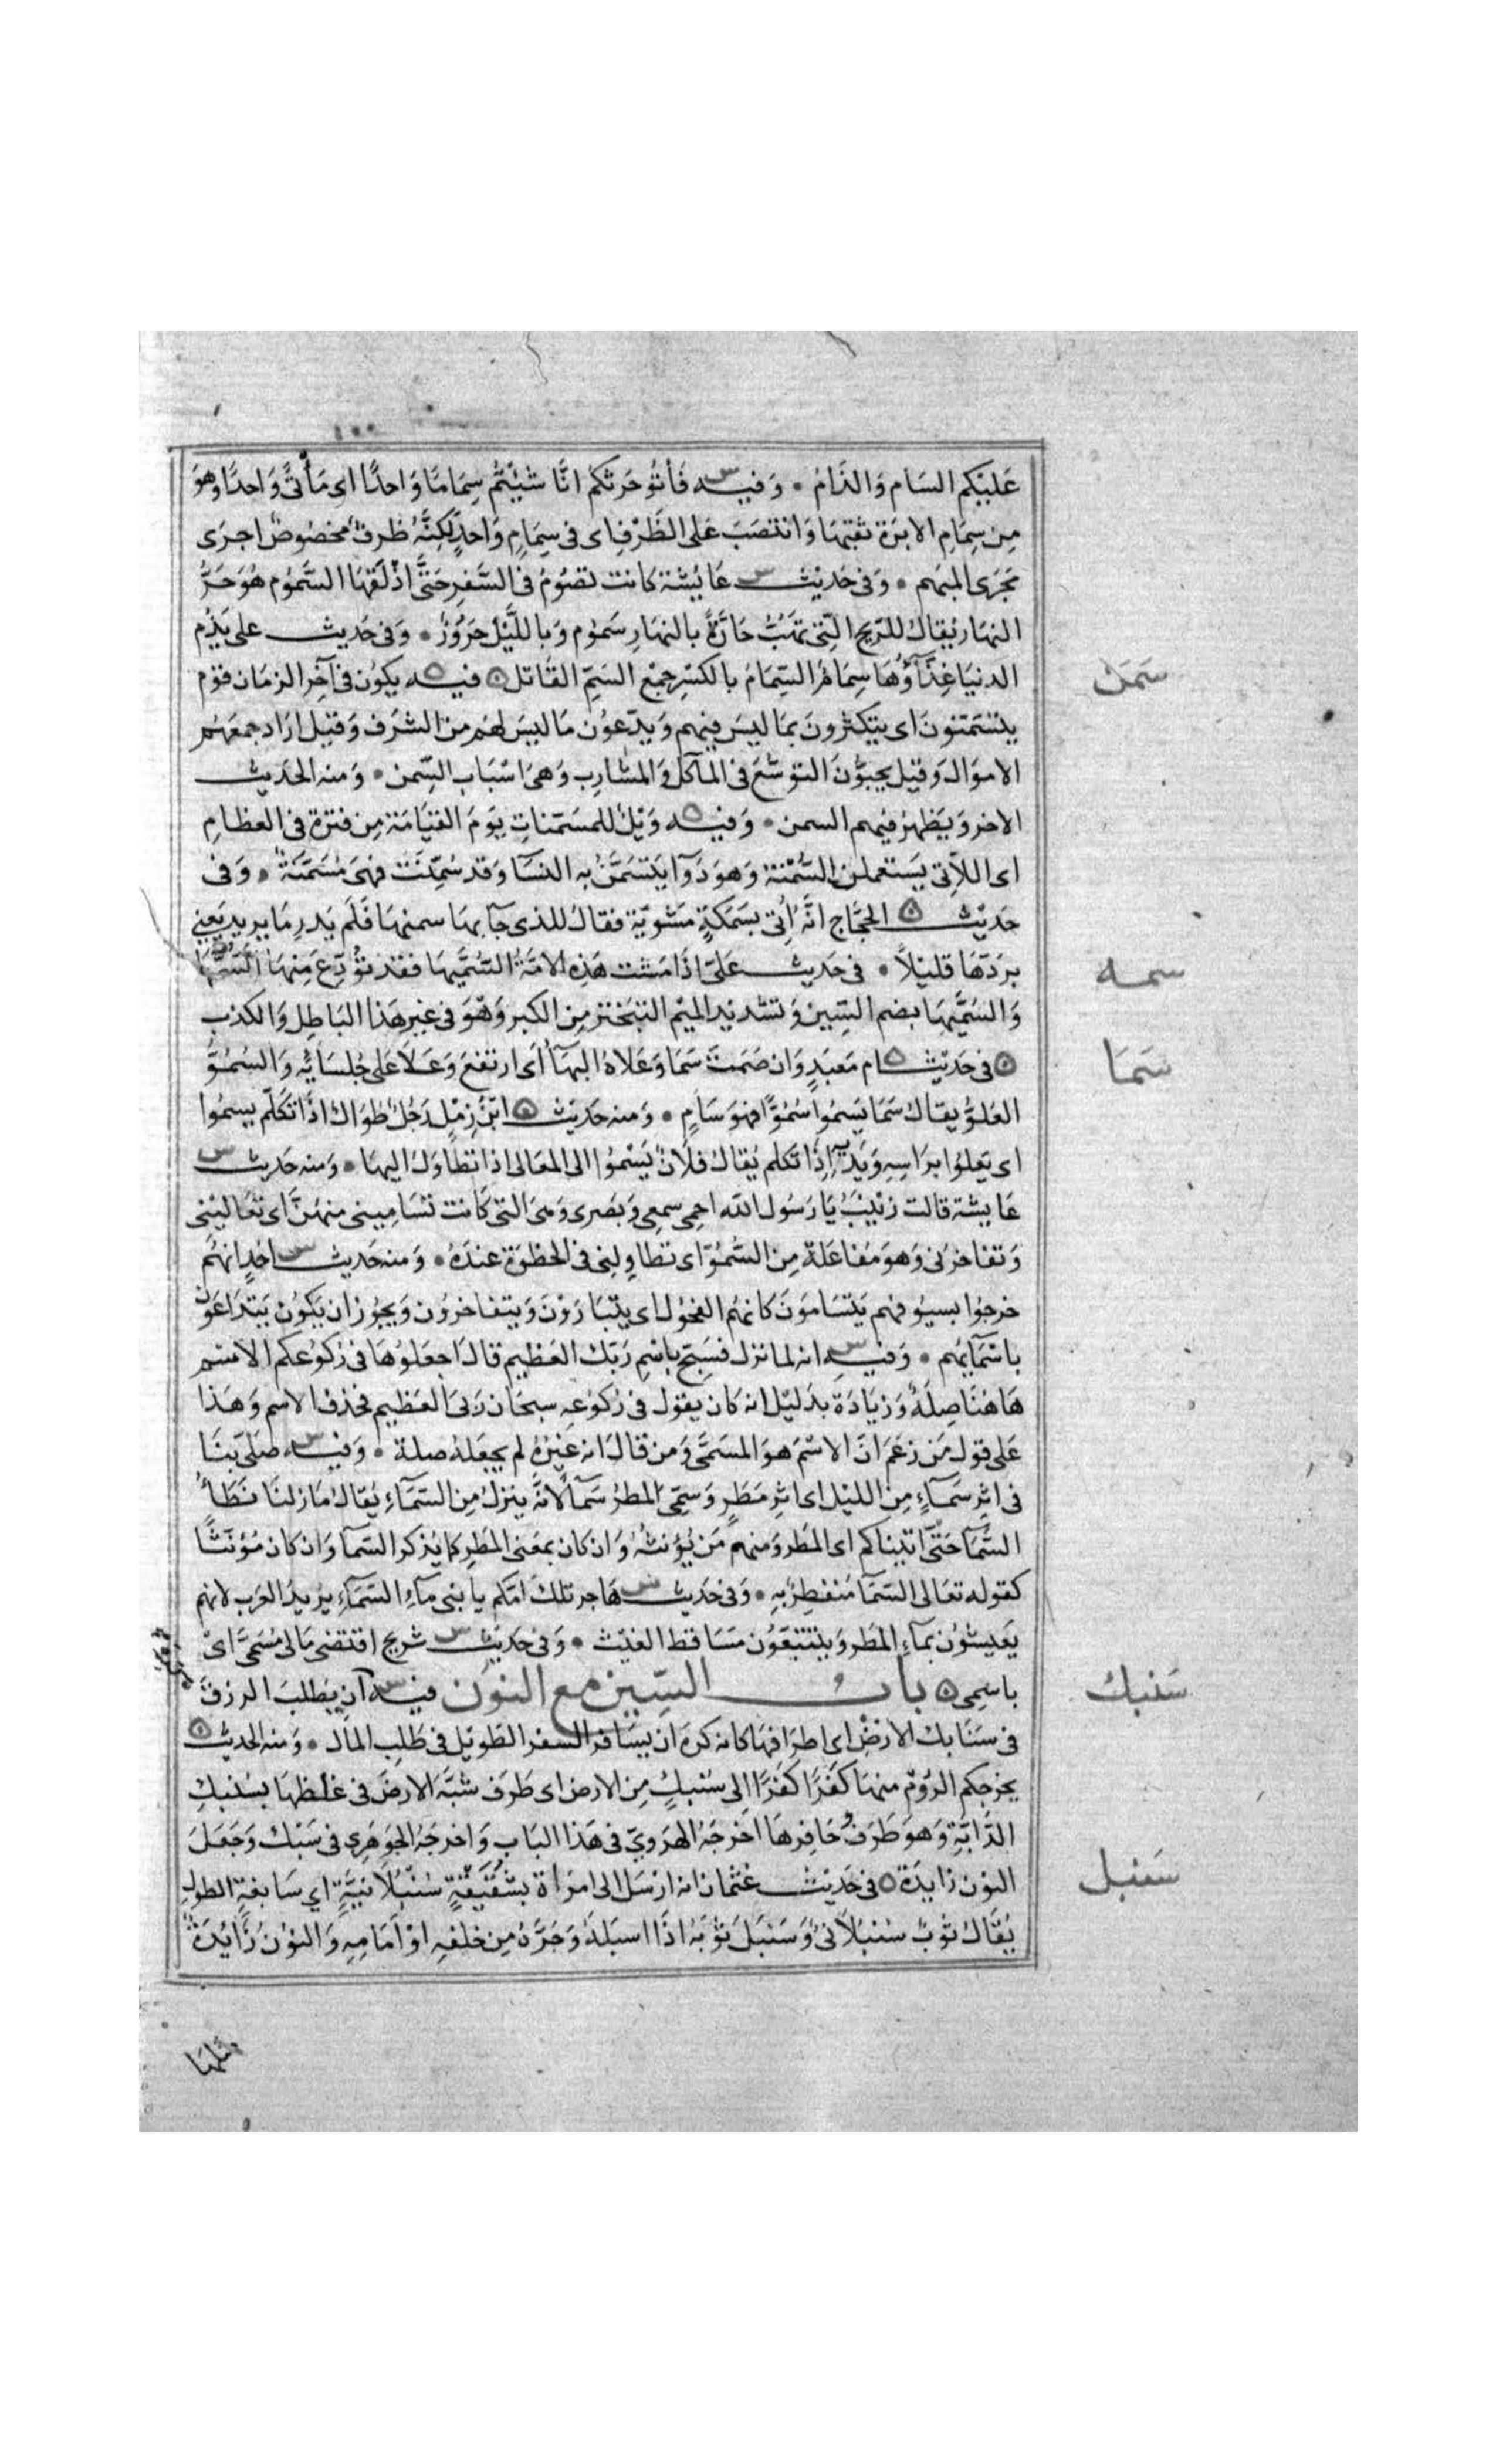 ١٠٠
عَليْكم السَام وَالذَام • وَفيه س فَأتُوحَرثكم انَّا شئِتُم سِمَامًا وَاحدًا اى مَأتىً وَاحدًا وهوَ
مِن سِمَامِ الابرَة ثقبِهَا وَانتصَبَ عَلى الظَرْفِ اى فى سِمَامٍ وَاحدٍ لكِنَّهُ ظرفٌ مخصُوصٌ اجرَى
مَجرَى المبهَم • وَفى حَديث س عَايُشَة كانت تصُوُمُ فى السَّفرِ حَتىَّ اذْلَقَهَا السَّمُوُم هُوَ حَرُّ
النهَار يُقالُ للرّيح التِى تَهُبُّ حَارَّةً بالنهَارِ سَمُوم وَبالليَّل حَرُوُرٌ • وَفى حَديث على يَذمُ
سَمَن
الدنيَا غِذَآؤُهَا سِمَامٌ السِّمَامُ بالكسْرِ جمْع السَمِّ القاتل ه فيه ه يكوُن فى آخِر الزمَان قوْم
يتسَمَّنونَ اى يتكثرونَ بمَا ليسَ فيهم وَيدّعوُن مَا ليسَ لهُم من الشَرَف وَقيْل ارَاد جمعَهُم
الاموَال وَقيْل يحبوُّنَ التوسُّعَ فى المآكل وَالمشارِب وَهىَ اسْبَاب السِّمن • وَمنه الحَديث
الاخر وَيَظهرُ فيهم السمن • وَفيه ه وَيْلٌ للمسَمّناتِ يوَمَ القيَامَة مِن فترة فى العظامِ
اى اللاّتى يَستعملنَ السُّمْنَة وَهوَ دَوَآ يَتسَمَّنُ به النسَآ وَقد سُمِّنَت فهىَ مُسَمَّنَةٌ • وَفى
حَديْث ه الحجَّاج انَّهُ اُتِىَ بسَمَكةٍ مَشوِيّة فقالَ للذى جَآ بهَا سمنهَا فَلَم يَدرِ مَا يريد يَعني
سمه
برَدّهَا قليْلاً • فى حَديث عَلىّ اذَا مَشت هَذِهِ الامَّةُ السُّمَّيهَا فقد تُوُدِّعَ مِنهَا السُّمَّهَا
وَالسُّمَّيهَا بضم السِّين وَتشديد الميْم التبَختر مِن الكبر وَهْوَ فى غير هَذا البَاطِل وَالكذب
سَمَا
ه فى حَديْث ه ام مَعبَدٍ وَان صَمَتَ سَمَا وَعَلاهُ البهَآ اى ارتفعَ وَعَلاَ عَلى جُلسَايُه وَالسُمُوُّ
العُلوُّ يقالُ سَمَا يَسموُا سُمُوًّا فهوَ سَامٍ • وَمنه حَديْث ه ابْنُ زِمْلٍ رَجُلٌ طوَال اذَا تكلمّ يسمُوا
اى يَعلوُا برَاسِهِ وَيَدَيهِ اِذَا تَكلم يُقالُ فلاَنٌ يَسْموُا الى المعَالى اذا تطاوَلَ اليهَا • وَمنه حَديث س
عَايشَة قالت زيْنبَ يَا رَسُول الله احمى سمعى وَبصَرى وَهىَ التى كَانت تسَامِينى منهُنَّ اى تعَاليْنى
وَتفاخرُنى وَهوَ مُفاعَلة مِن السُّموُّ اى تطاوِلنى فى الحظوَة عندَهُ • وَمنه حَديث س احُدٍ انهُم
خرجوُا بسيوُفهم يَتسَاموَنَ كانهمُ الفحوُل اى يتَبَارَوْنَ وَيتفاخروُن وَيجوُز ان يَكوُن يَتدَاعَوْن
باسْمَآيُهم • وَفيه س انه لما نزل فسَبّح باسْمِ رَبّك العَظيم قالَ اجعَلوُهَا فى رُكوُعكم الاسْم
هَاهُنَا صِلَةٌ وَزيَادَة بدَليْل انه كان يقوْل فى رُكوُعه سبحَان رَبىَ العَظيم فحذف الاسْم وَهَذا
عَلى قول مَن زعَمَ انّ الاسْمَ هوَ المسَمَّى وَمن قالَ انه غيْرُهُ لم يجعَلهُ صلة • وَفيه س صَلىّ بنَا
فى اثرِ سَمَآءٍ مِن الليْل اى اثرِ مَطرٍ وَسمّى المطرُ سَمآً لانَّهُ ينزِلُ مِن السَّمَاءِ يُقالُ مَازلنَا نَطَأُ
السَّمَا حَتىَّ اتيناكم اى المَطر وَمنهم مَن يُؤنثُهُ وَان كان بمعَنى المطرِ كمَا يُذكر السّمآ وَان كان مُؤنثًا
كقوله تعَالى السّمَآ مُنفطِرٌ بهِ • وَفى حَديث س هَاجر تلكَ امّكم يا بَنى مَآءِ السّمَآءِ يريدُ العَرب لانهم
يَعيشوُن بمَآءِ المَطر وَيتتبَعوُن مَسَاقط الغيْث • وَفى حديث س شريح اقتضى مَالى مُسَمىَّ اىْ
سَنبك
باسمِى ه بابُ السّيِن مع النوُن فيه س آن يَطلبَ الرزقَ
فى سَنَابك الارضِ اى اطرَافهَا كانه كرهَ ان يسَافر السفر الطوَيْل فى طَلبِ المَال • وَمنه الحديث ه
يخرجكم الروُم منهَا كَفْرًا كَفْرًا الى سُنبكٍ مِن الارض اى طَرَف شبَّهَ الارضَ فى غلظهَا بسُنبكِ
الدَّابَّةِ وَهوَ طَرَفُ حَافِرهَا اخرجَهُ الهَروِيّ فى هَذا البَابِ وَاخرجَهُ الجَوهَرِى فى سَبَك وَجَعَلَ
سَنبل
النون زايدَة ه فى حَديْث عثمَان انه ارْسَل الى امرَاة بشُقَيْقَةٍ سُنْبُلاَنيَّةٍ اى سَابغةِ الطولِ
يُقالُ ثوْبٌ سُنبُلاَنىٌّ وَسَنبَلَ ثوْبَهُ اذَا اسبَلهُ وَجَرَّهُ مِن خلفهِ اوْ اَمَامِهِ وَالنوُن زَايُدَةٌ
مثلهَا